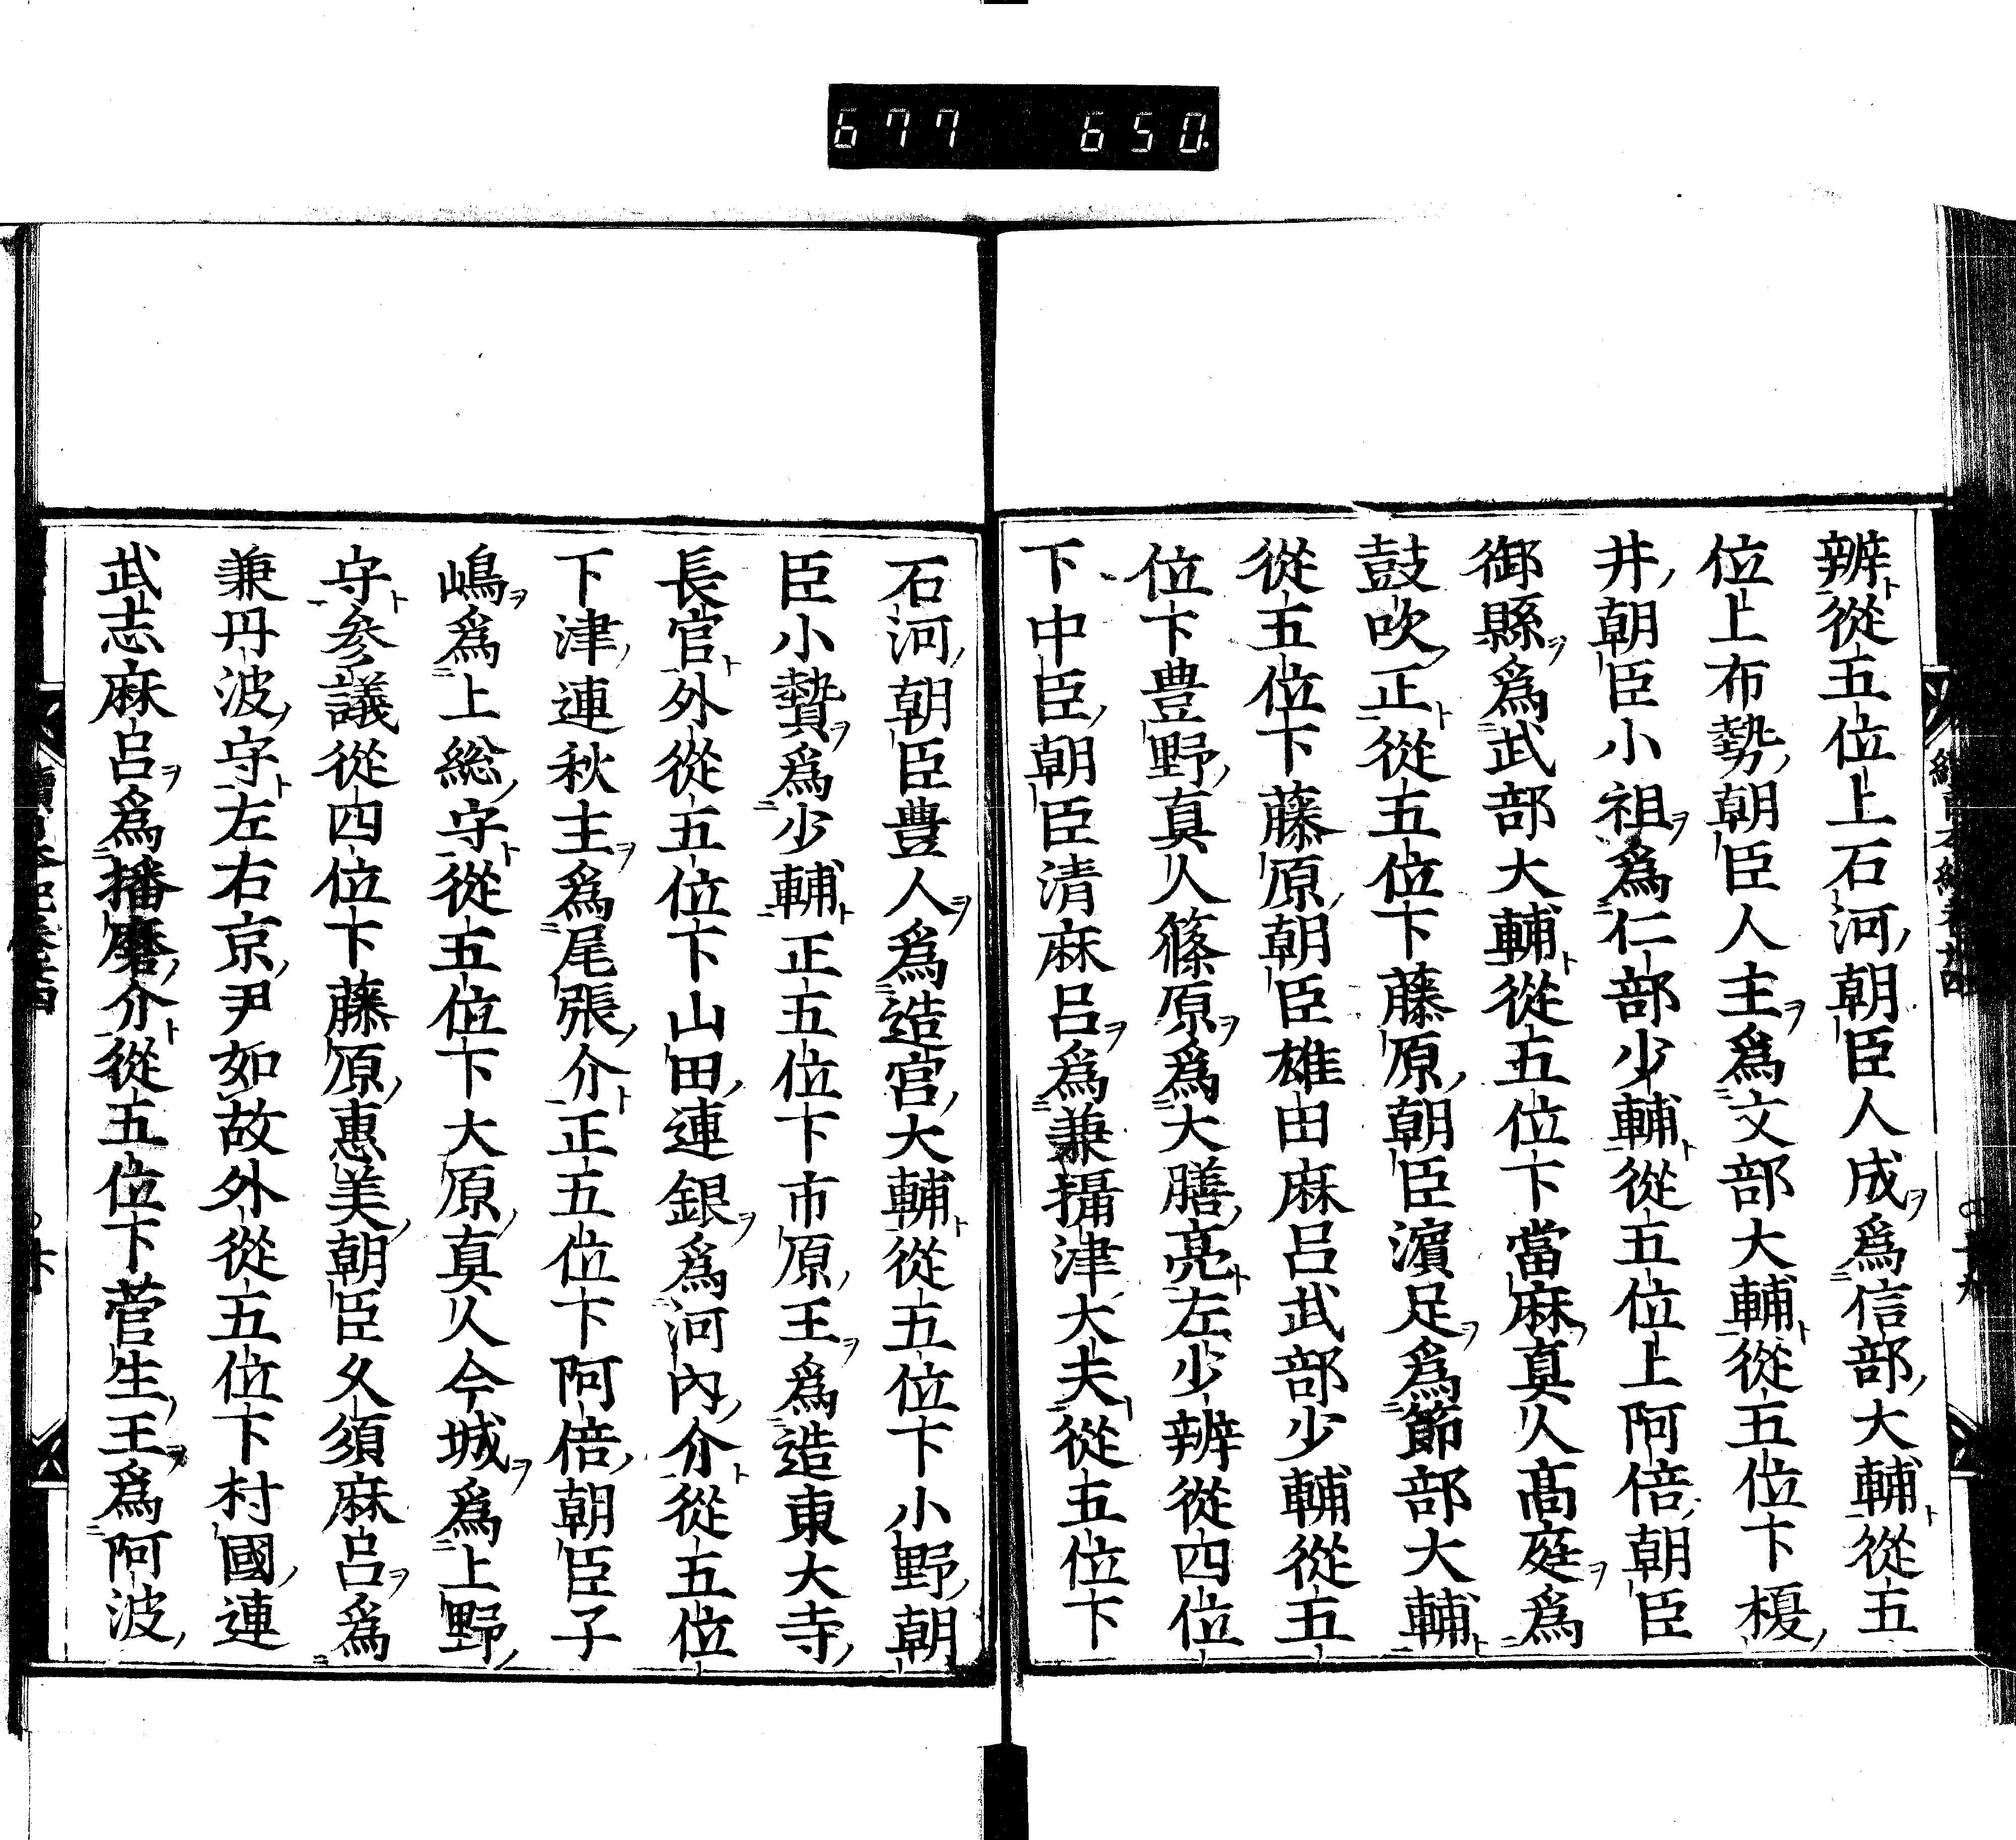 677 650.
辨從五位上石河朝臣人成爲信部大輔從五
位上布勢朝臣人主爲文部大輔從五位下榎
井朝臣小祖爲仁部少輔從五位上阿倍朝臣
御縣爲武部大輔從五位下當麻真人髙庭爲
鼓吹正從五位下藤原朝臣濵足爲節部大輔
從五位下藤原朝臣雄田麻呂武部少輔從五
位下豊野真人篠原爲大膳亮左少辨從四位
下中臣朝臣清麻呂爲兼攝津大夫從五位下
石河朝臣豊人爲造宮大輔從五位下小野朝
臣小贄爲少輔正五位下市原王爲造東大寺
長官外從五位下山田連銀爲河內介從五位
下津連秋主爲尾張介正五位下阿倍朝臣子
嶋爲上総守從五位下大原真人今城爲上野
守參議從四位下藤原惠美朝臣久須麻呂爲
兼丹波守左右京尹如故外從五位下村國連
武志麻呂爲播磨介從五位下菅生王爲阿波